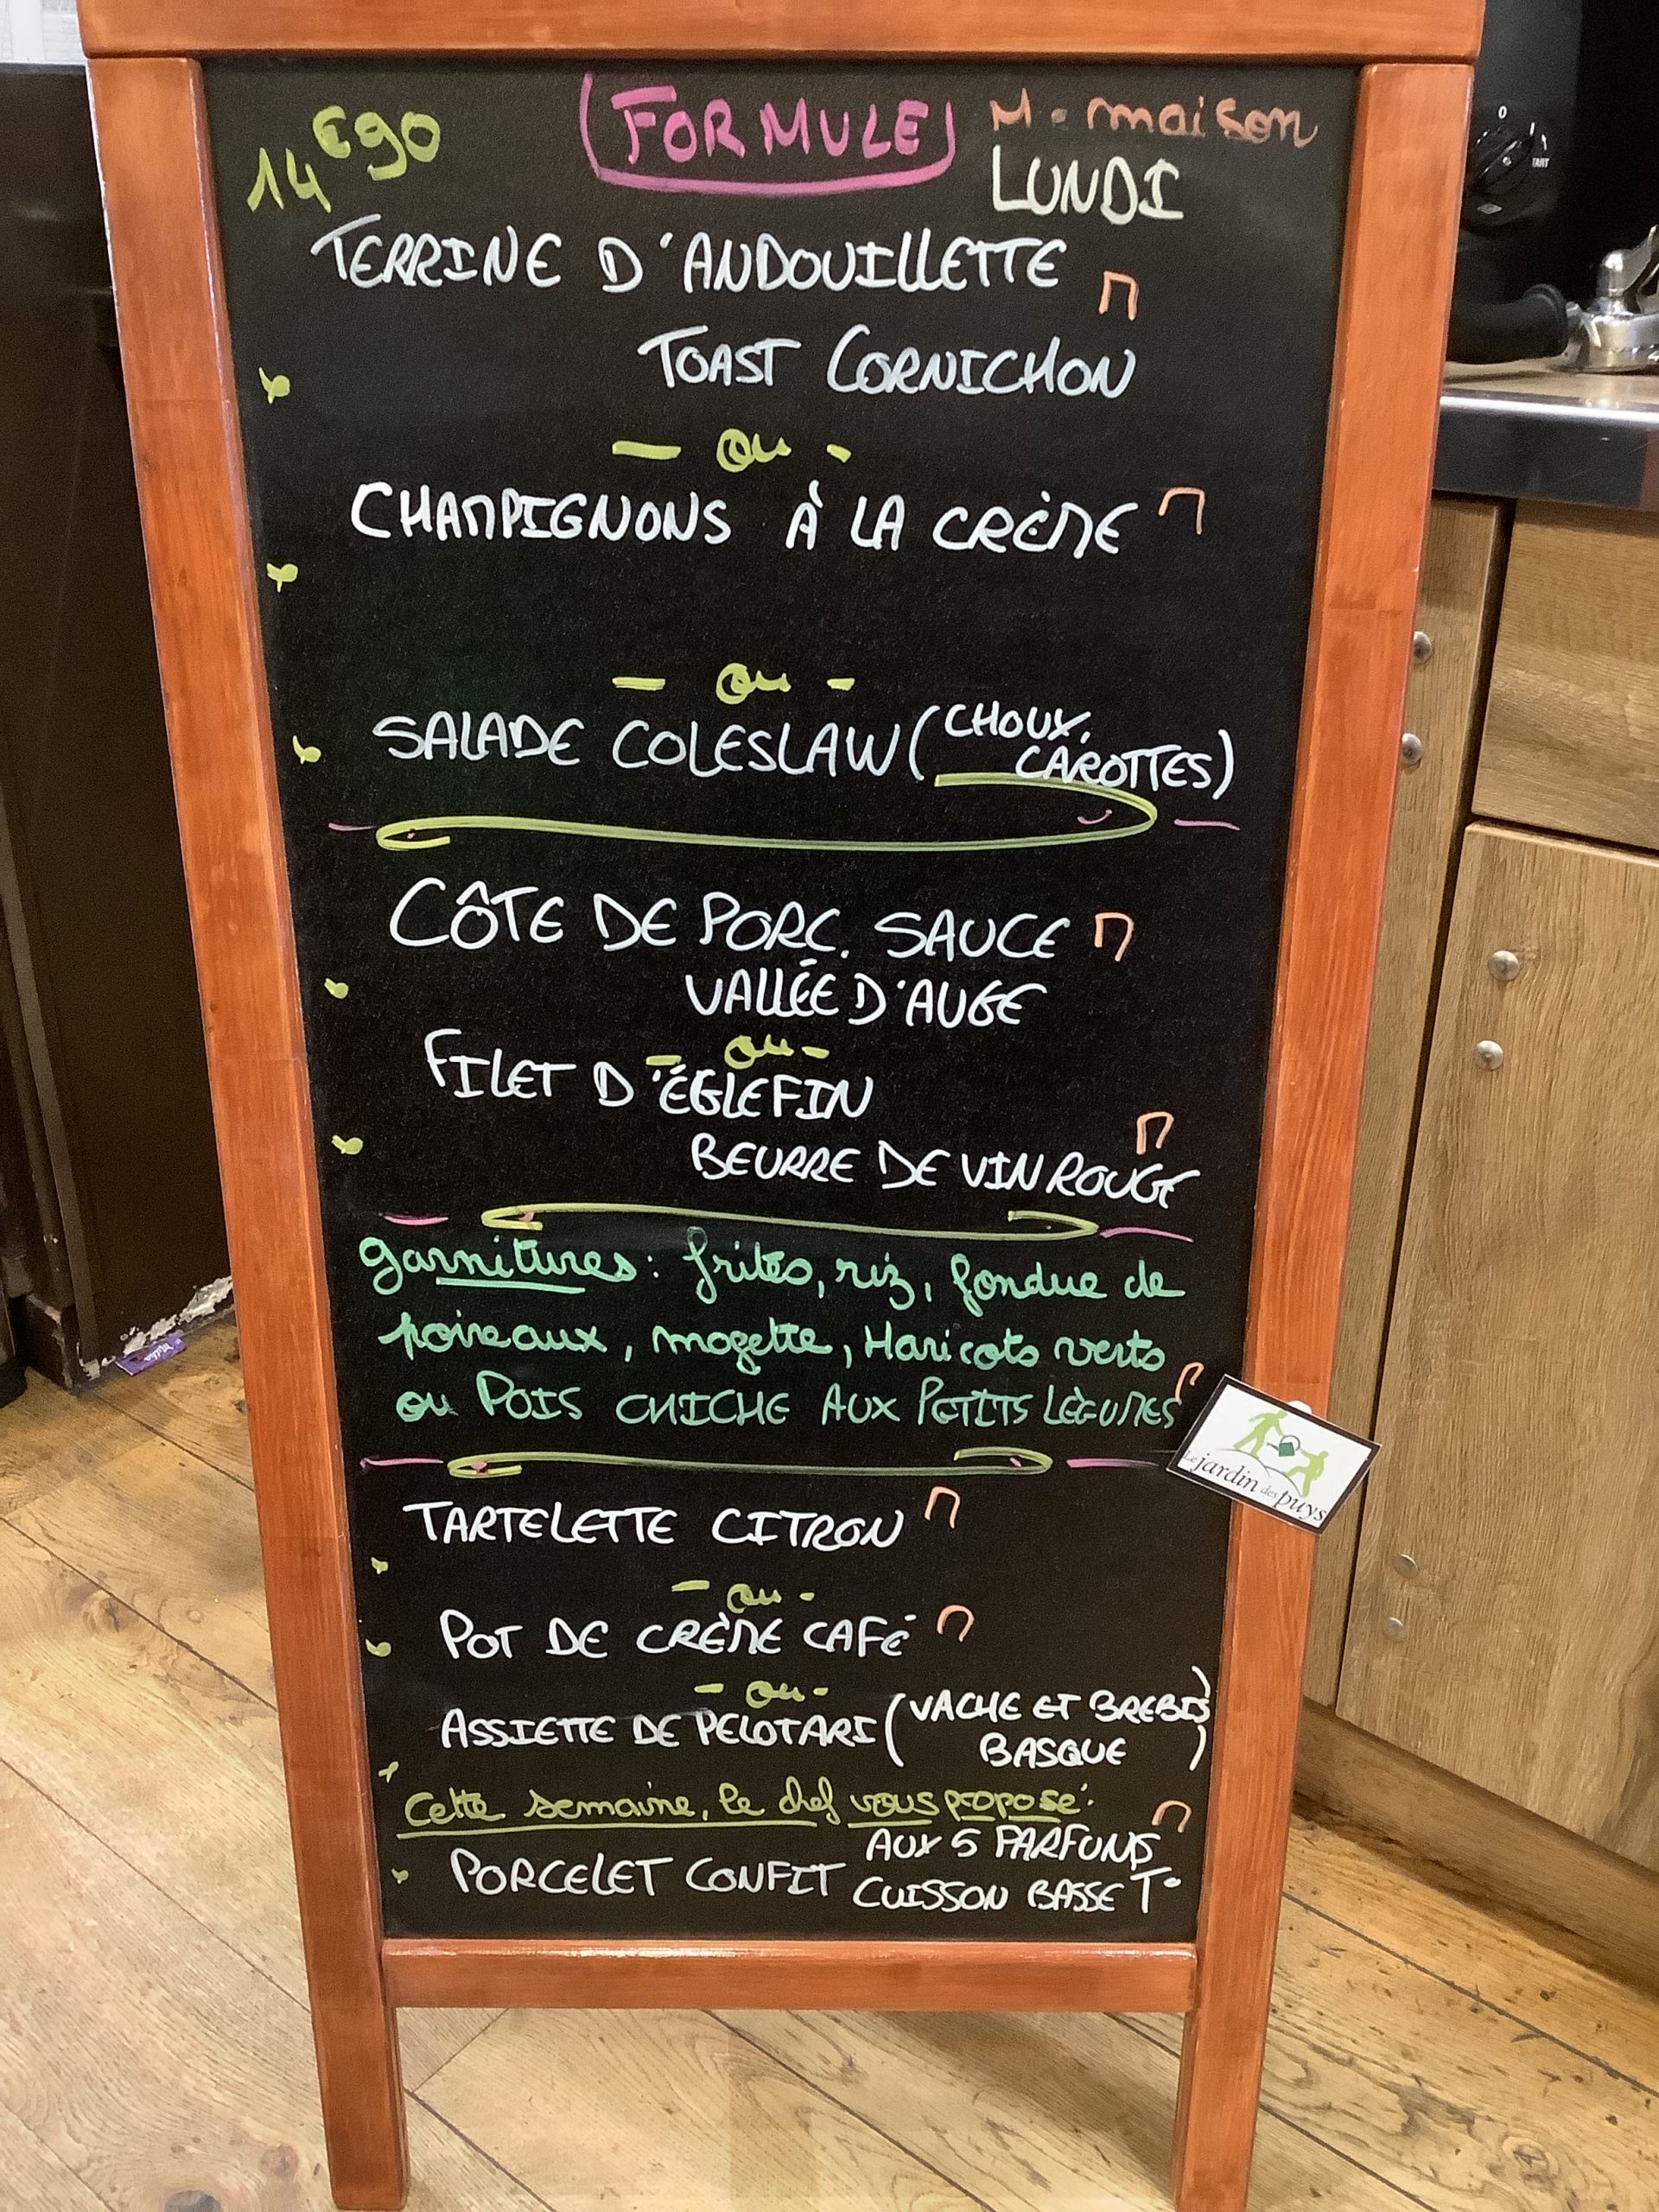 14€90
FORMULE
M = maison
LUNDI
TERRINE D'ANDOUILLETTE M
TOAST CORNICHON
- ou -
CHAMPIGNONS À LA CRÈME M
- ou -
SALADE COLESLAW (CHOUX,
CAROTTES)
CÔTE DE PORC. SAUCE M
VALLÉE D'AUGE
- ou -
FILET D'ÉGLEFIN
BEURRE DE VIN ROUGE M
garnitures : frites, riz, fondue de
poireaux, mogette, Haricots verts
ou POIS CHICHE AUX PETITS LÈGUMES M
Le jardin des puys
TARTELETTE CITRON M
- ou -
POT DE CRÈME CAFÉ M
- ou -
ASSIETTE DE PELOTARI (VACHE ET BREBIS
BASQUE)
Cette semaine, le chef vous propose :
AUX 5 PARFUMS M
PORCELET CONFIT CUISSON BASSE T°